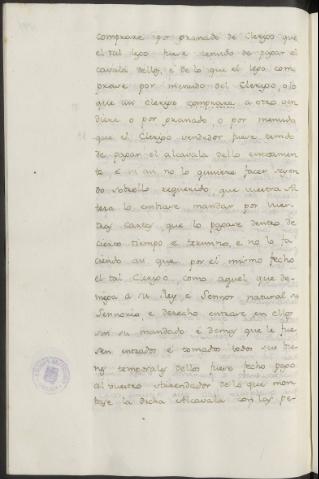 comprare por granado de Clerigos que
el tal lego fuere tenudo de pagar el
cavala dellos, e de lo que el lego com
prare por menudo del Clerigo, o lo
que un clerigo comprara a otro ven
diere o por granado, o por menudo
que el Clerigo vendedor fuere tenudo
de pagar el alcavala dello enteramen
te e si asi no lo quisiere facer seyen
do sobrello requerido, que vuestra Al
teza lo embiare mandar por vues
tras cartas que lo pagare dentro de
cierto tiempo e termino, e no lo fa
ciendo asi que por el mismo fecho
el tal Clerigo, como aquel que de
niega a su Rey e Sennor natural su
Sennorio, e derecho
sin su mandado e demas que le fue
sen entrados e tomados todos sus bie
nes temporales dellos fuere fecho pago
al vuestro Arrendador de lo que mon
tase la dicha Alcavala con las pe-